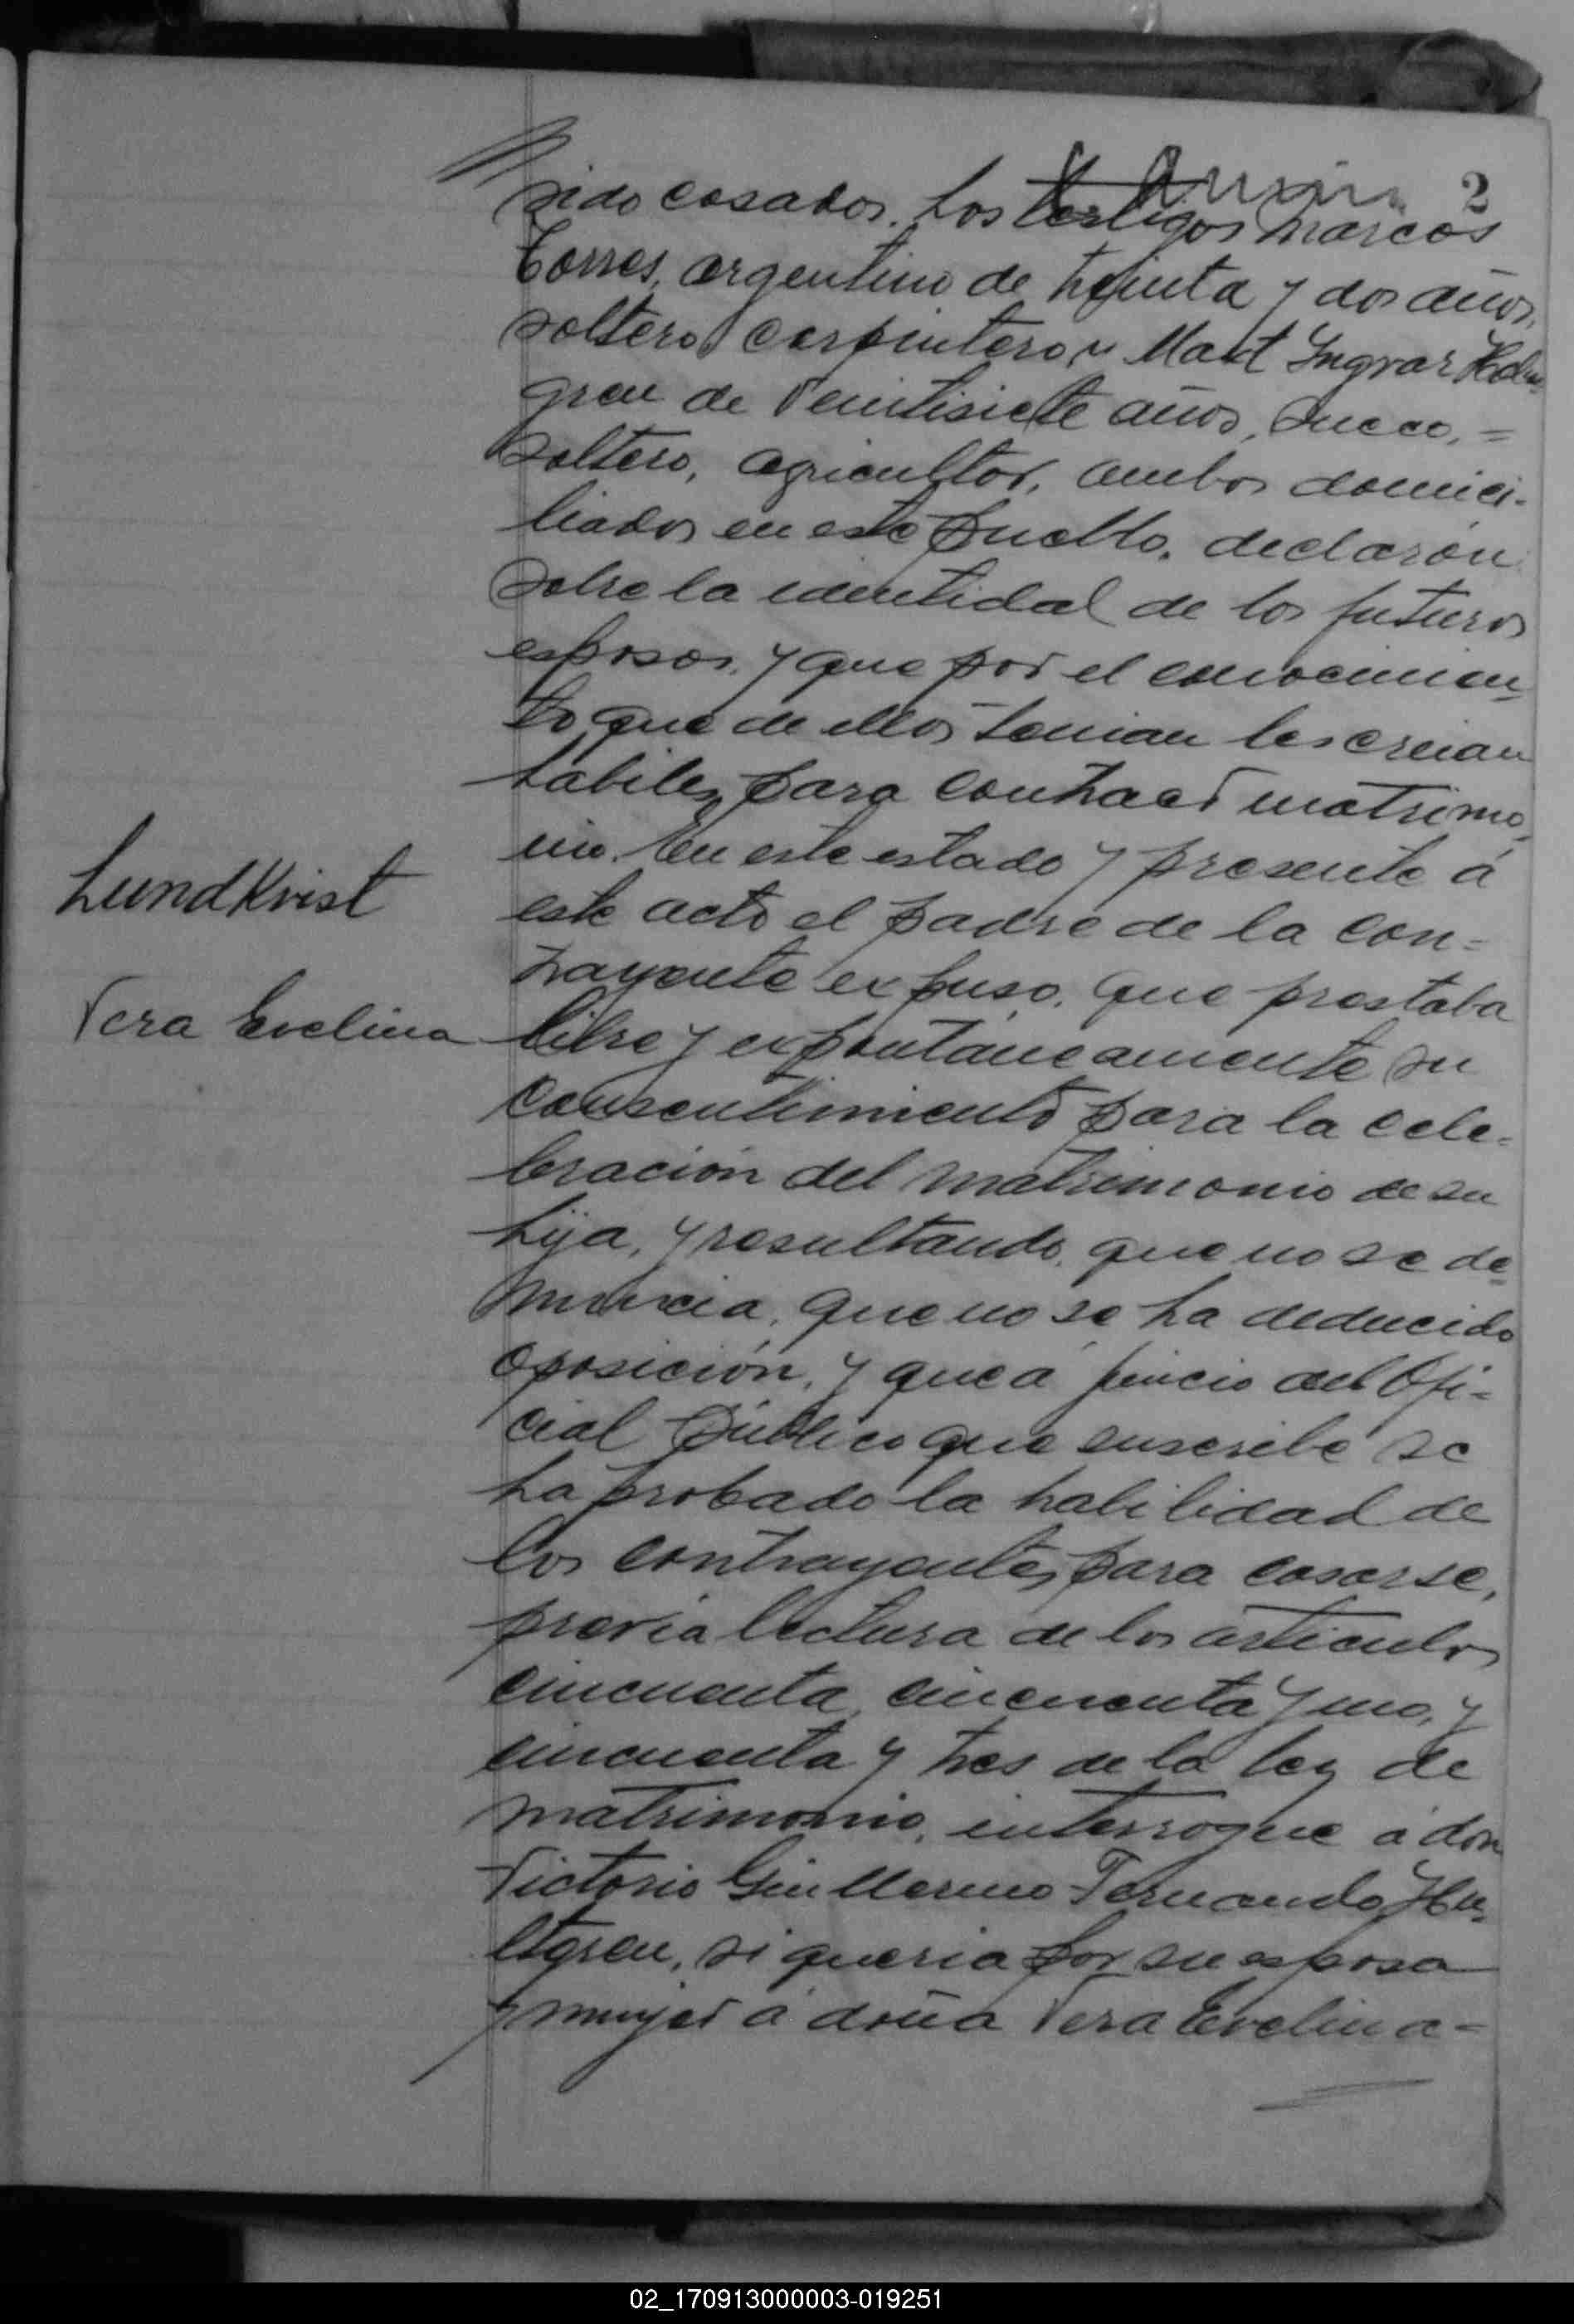 2
sido casados. Los testigos Marcos
Torres, argentino de treinta y dos años,
soltero, carpintero, y Mart Ingvar Holm-
gren de veintisiete años, Sueco, =
soltero, agricultor, ambos domici-
liados en este pueblo, declaron
sobre la identidad de los futuros
esposos, y que por el conocimien-
to que de ellos tenian les creian
habiles para contraer matrimo-
nio. En este estado y presente á
este acto el padre de la con=
trayente expuso, que prestaba
libre y expontáneamente su
consentimiento para la cele-
bración del matrimonio de su
hija, y resultando, que no se de-
nuncia, que no se ha deducido
oposición, y que á juicio del Ofi-
cial Público que suscribe se
ha probado la habilidad de
los contrayentes para casarse,
previa lectura de los articulos
cincuenta, cincuenta y uno, y
cincuenta y tres de la ley de
matrimonio, interrogue á don
Victorio Guillermo Fernando Hu-
ltgren, si queria por su esposa
y mujer á doña Vera Evelina =
Lundkvist
Vera Evelina
02_170913000003-019251